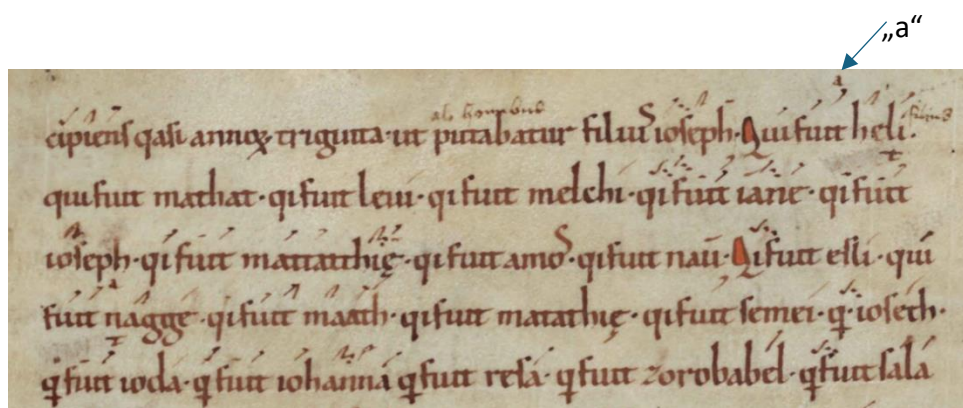 „a“
a
ab hominibus
cipiens qasi annoꝝ triginta · ut putabatur filius ioseph · Qui fuit heli · filius
qui fuit mathat · qi fuit leui · qi fuit melchi · qi fuit ianne · qi fuit
ioseph · qi fuit mattathię · qi fuit amos · qi fuit naū · Qi fuit esli · qui
fuit nagge · qi fuit maath · qi fuit matathię · qi fuit semei · q̇ ioseth ·
q fuit ioda · q fuit iohanna q fuit resa · q fuit zorobabel · q fuit sala